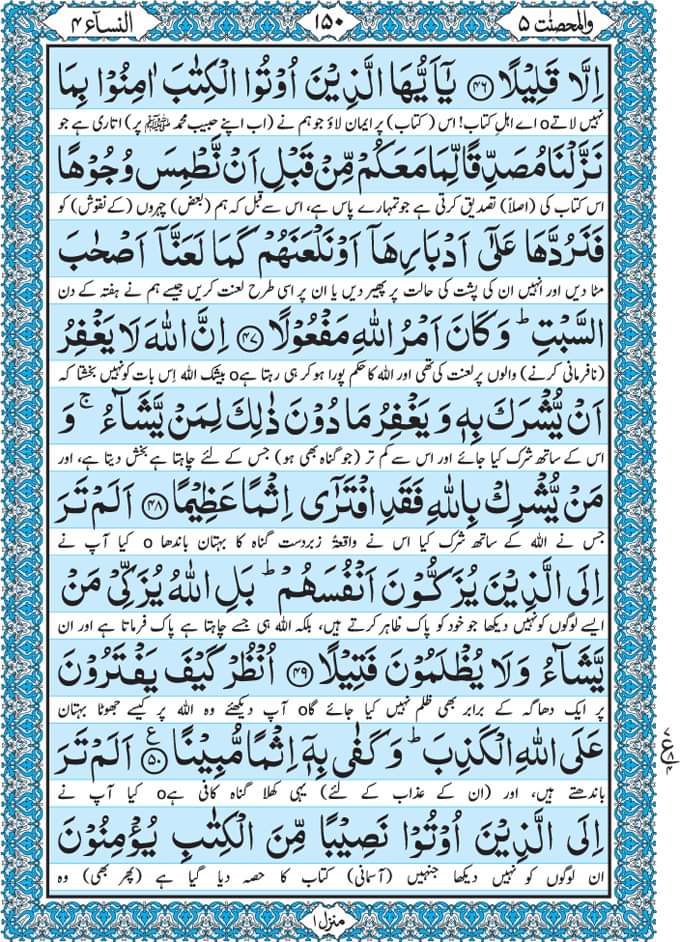 والمحصنٰت ۵ ۱۵۰ النسآء ۴
اِلَّا قَلِيْلًا ﴿۴۶﴾ يٰۤاَيُّهَا الَّذِيْنَ اُوْتُوا الْكِتٰبَ اٰمِنُوْا بِمَا
نہیں لاتے o اے اہلِ کتاب! اس (کتاب) پر ایمان لاؤ جو ہم نے (اب اپنے حبیب محمد ﷺ پر) اتاری ہے جو
نَزَّلْنَا مُصَدِّقًا لِّمَا مَعَكُمْ مِّنْ قَبْلِ اَنْ نَّطْمِسَ وُجُوْهًا
اس کتاب کی (اصلاً) تصدیق کرتی ہے جو تمہارے پاس ہے، اس سے قبل کہ ہم (بعض) چہروں (کے نقوش) کو
فَنَرُدَّهَا عَلٰۤى اَدْبَارِهَاۤ اَوْ نَلْعَنَهُمْ كَمَا لَعَنَّاۤ اَصْحٰبَ
مٹا دیں اور انہیں ان کی پشت کی حالت پر پھیر دیں یا ان پر اسی طرح لعنت کریں جیسے ہم نے ہفتہ کے دن
السَّبْتِ ؕ وَ كَانَ اَمْرُ اللّٰهِ مَفْعُوْلًا ﴿۴۷﴾ اِنَّ اللّٰهَ لَا يَغْفِرُ
(نافرمانی کرنے) والوں پر لعنت کی تھی اور اللہ کا حکم پورا ہو کر ہی رہتا ہے o بیشک اللہ اِس بات کو نہیں بخشتا کہ
اَنْ يُّشْرَكَ بِهٖ وَ يَغْفِرُ مَا دُوْنَ ذٰلِكَ لِمَنْ يَّشَآءُ ۚ وَ
اس کے ساتھ شرک کیا جائے اور اس سے کم تر (جو گناہ بھی ہو) جس کے لئے چاہتا ہے بخش دیتا ہے، اور
مَنْ يُّشْرِكْ بِاللّٰهِ فَقَدِ افْتَرٰۤى اِثْمًا عَظِيْمًا ﴿۴۸﴾ اَلَمْ تَرَ
جس نے اللہ کے ساتھ شرک کیا اس نے واقعۃً زبردست گناہ کا بہتان باندھا o کیا آپ نے
اِلَى الَّذِيْنَ يُزَكُّوْنَ اَنْفُسَهُمْ ؕ بَلِ اللّٰهُ يُزَكِّيْ مَنْ
ایسے لوگوں کو نہیں دیکھا جو خود کو پاک ظاہر کرتے ہیں، بلکہ اللہ ہی جسے چاہتا ہے پاک فرماتا ہے اور ان
يَّشَآءُ وَلَا يُظْلَمُوْنَ فَتِيْلًا ﴿۴۹﴾ اُنْظُرْ كَيْفَ يَفْتَرُوْنَ
پر ایک دھاگہ کے برابر بھی ظلم نہیں کیا جائے گا o آپ دیکھئے وہ اللہ پر کیسے جھوٹا بہتان
عَلَى اللّٰهِ الْكَذِبَ ؕ وَ كَفٰى بِهٖۤ اِثْمًا مُّبِيْنًا ﴿۵۰﴾ ع اَلَمْ تَرَ
باندھتے ہیں، اور (ان کے عذاب کے لئے) یہی کھلا گناہ کافی ہے o کیا آپ نے
اِلَى الَّذِيْنَ اُوْتُوْا نَصِيْبًا مِّنَ الْكِتٰبِ يُؤْمِنُوْنَ
ان لوگوں کو نہیں دیکھا جنہیں (آسمانی) کتاب کا حصہ دیا گیا ہے (پھر بھی) وہ
منزل ۱